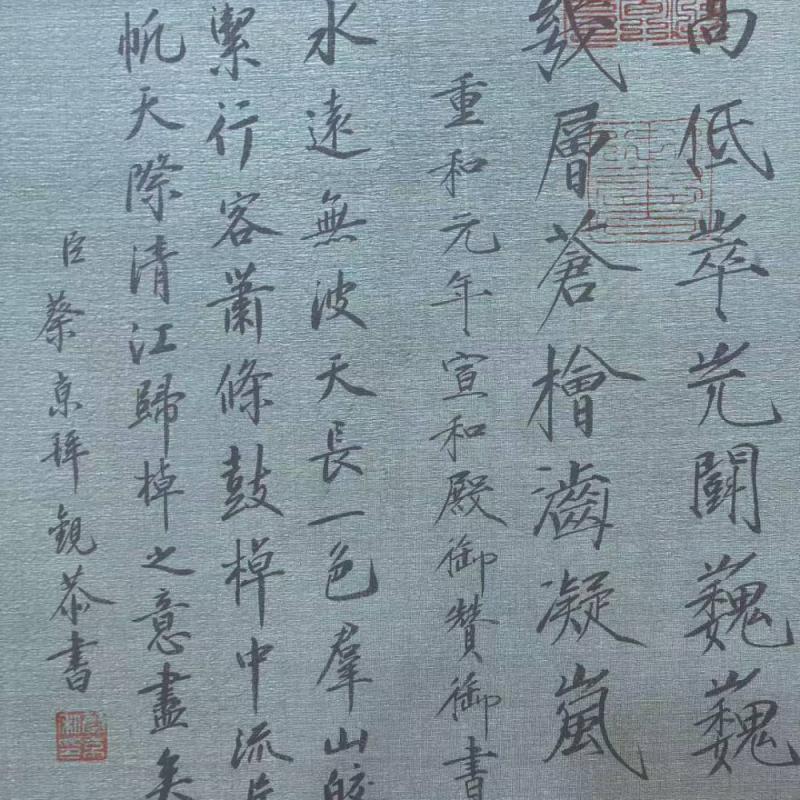 高低崒屼闘巍巍
幾層蒼檜凝嵐
重和元年宣和殿御賛御書
水遠無波天長一色羣山皎
潔行客蕭條鼓棹中流片
帆天際清江歸棹之意盡矣
臣蔡京拜觀恭書